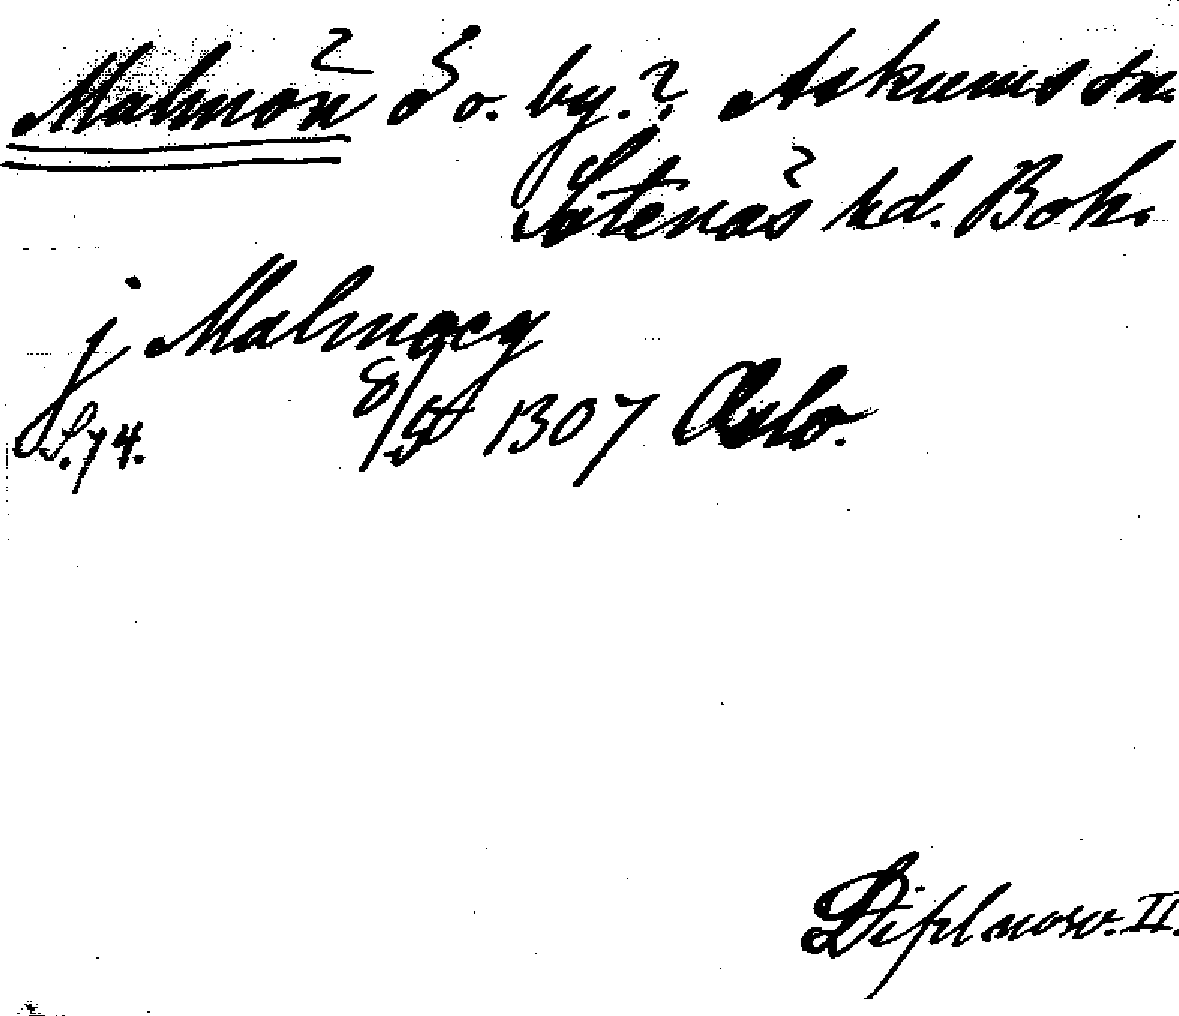 Malmön ö o. by.? Askums sn.
Sotenäs hd. Boh.
j Malmoey
S. 74. 8/5 1307 Oslo.
Dipl. norv. II.